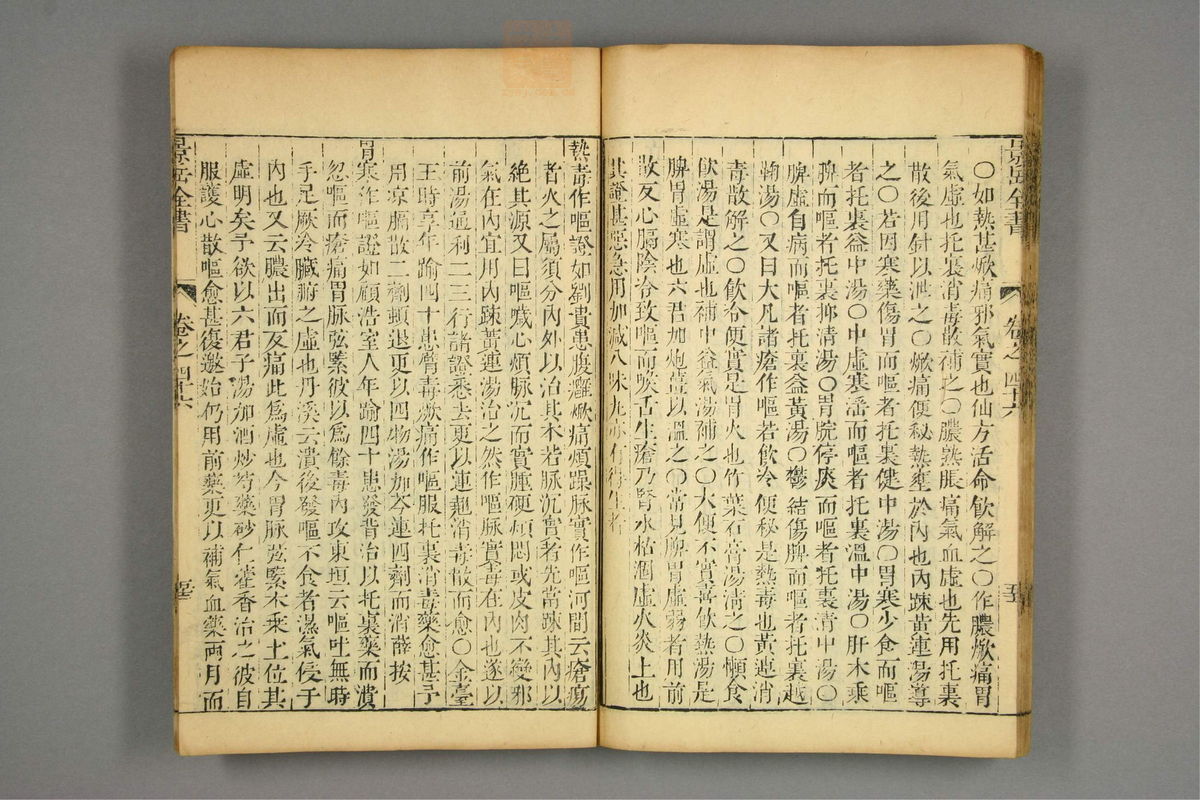 景岳全書
卷之四十六
○如熱甚焮痛邪氣實也仙方活命飲解之○作膿焮痛胃
氣虛也托裏消毒散補之○膿熟脹痛氣血虛也先用托裏
散後用針以泄之○焮痛便秘熱壅於內也內踈黃連湯導
之○若因寒藥傷胃而嘔者托裏健中湯○胃寒少食而嘔
者托裏益中湯○中虛寒滛而嘔者托裏溫中湯○肝木乘
脾而嘔者托裏抑清湯○胃脘停痰而嘔者托裏清中湯○
脾虛自病而嘔者托裏益黃湯○鬱結傷脾而嘔者托裏越
鞠湯○又曰大凡諸瘡作嘔若飲冷便秘是熱毒也黃連消
毒散解之○飲冷便實是胃火也竹葉石膏湯清之○懶食
飲湯是謂虛也補中益氣湯補之○大便不實喜飲熱湯是
脾胃虛寒也六君加炮薑以溫之○常見脾胃虛弱者用前
散反心膈陰冷致嘔而喉舌生瘡乃腎水枯涸虛火炎上也
其證甚惡急用加減八味丸亦有得生者
熱毒作嘔證如劉貴患腹癰焮痛煩躁脉實作嘔河間云瘡瘍
者火之屬須分內外以治其本若脉沉實者先當踈其內以
絕其源又曰嘔噦心煩脉沉而實腫硬頻悶或皮肉不變邪
氣在內宜用內踈黃連湯治之然作嘔脉實毒在內也遂以
前湯通利二三行諸證悉去更以連翹消毒散而愈○金臺
王時亨年踰四十患臂毒焮痛作嘔服托裏消毒藥愈甚予
用凉膈散二劑頓退更以四物湯加芩連四劑而消薛按
胃寒作嘔證如顧浩室人年踰四十患發背治以托裏藥而潰
忽嘔而瘡痛胃脉弦緊彼以爲餘毒內攻東垣云嘔吐無時
手足厥冷臟腑之虛也丹溪云潰後發嘔不食者濕氣侵于
內也又云膿出而反痛此爲虛也今胃脉弦緊木乘土位其
虛明矣予欲以六君子湯加酒炒芍藥砂仁藿香治之彼自
服護心散嘔愈甚復邀始仍用前藥更以補氣血藥兩月而
景岳全書
卷之四十六